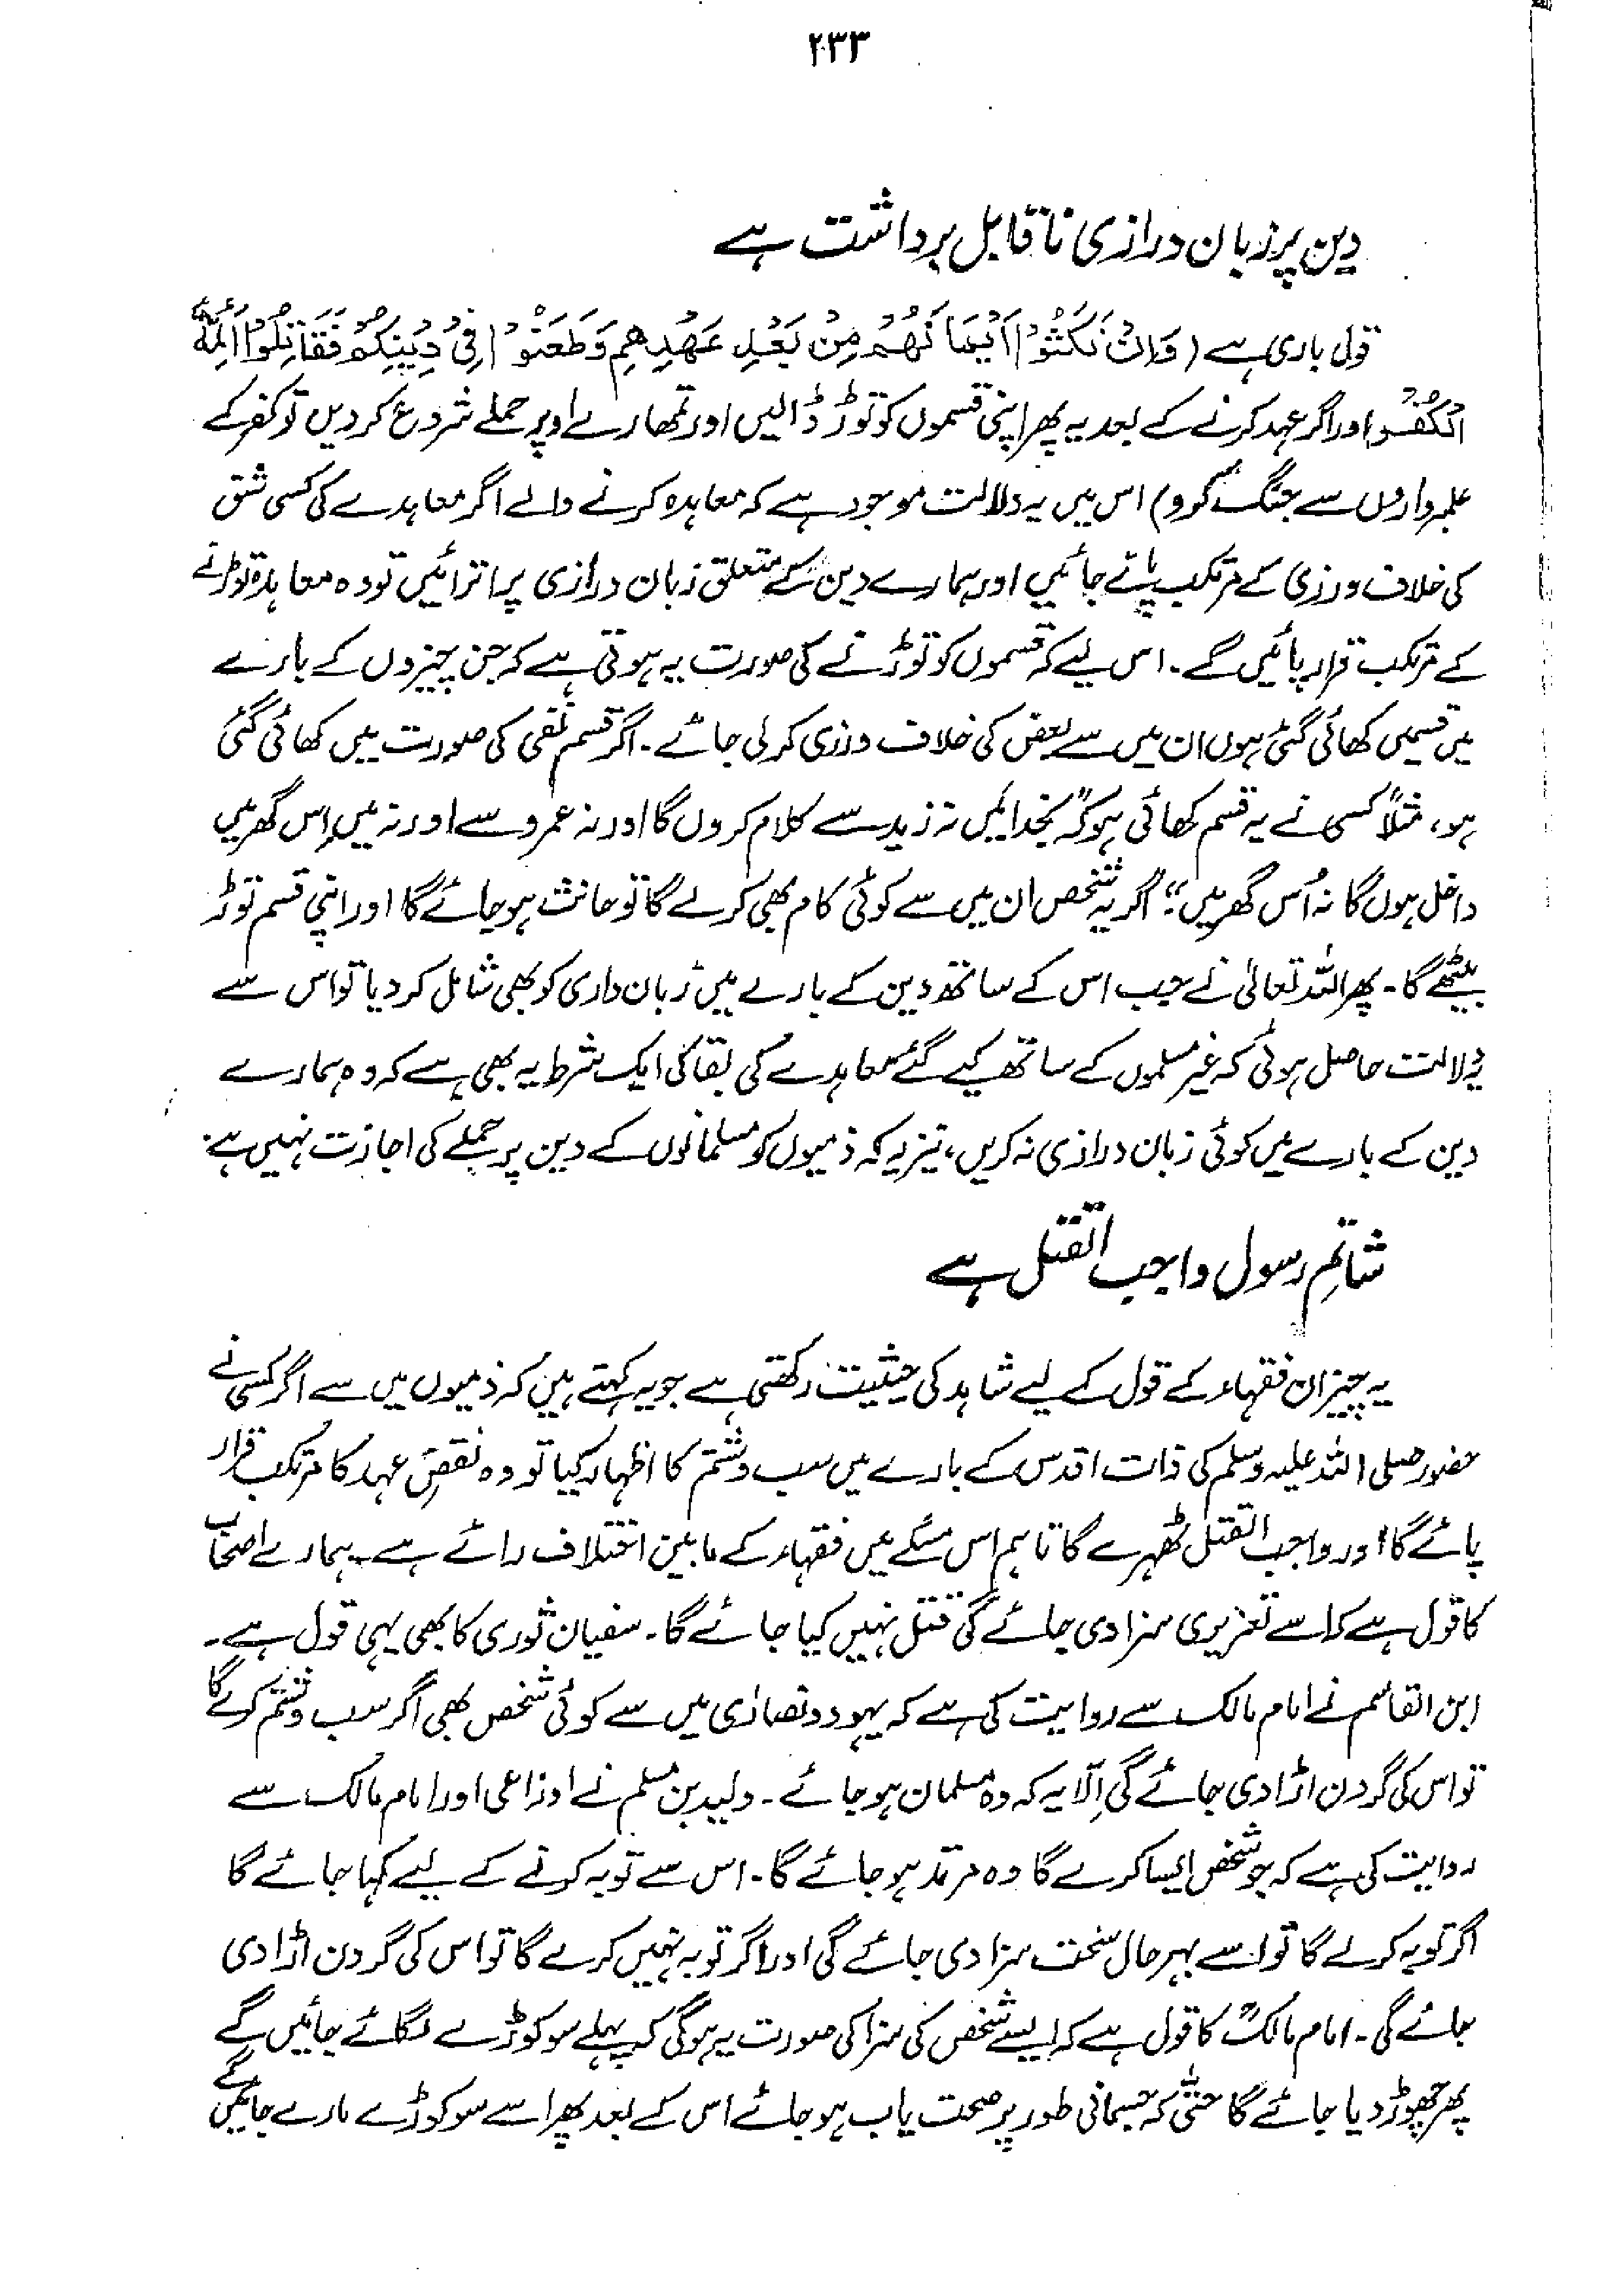 ۲۳۳
دین پر زبان درازی ناقابل برداشت ہے
قول باری ہے (وَاِنْ نَّكَثُوْا اَيْمَانَهُمْ مِنْ بَعْدِ عَهْدِهِمْ وَطَعَنُوْا فِيْ دِيْنِكُمْ فَقَاتِلُوْا اَئِمَّةَ
الْكُفْرِ اور اگر عہد کرنے کے بعد یہ پھر اپنی قسموں کو توڑ ڈالیں اور تمھارے اوپر حملے شروع کر دیں تو کفر کے
علمبرداروں سے جنگ کرو) اس میں یہ دلالت موجود ہے کہ معاہدہ کرنے والے اگر معاہدے کی کسی شق
کی خلاف ورزی کے مرتکب پائے جائیں اور ہمارے دین کے متعلق زبان درازی پر اتر آئیں تو وہ معاہدہ توڑنے
کے مرتکب قرار پائیں گے۔ اس لیے کہ قسموں کو توڑنے کی صورت یہ ہوتی ہے کہ جن چیزوں کے بارے
میں قسمیں کھائی گئی ہوں ان میں سے بعض کی خلاف ورزی کر لی جائے۔ اگر قسم نفی کی صورت میں کھائی گئی
ہو، مثلاً کسی نے یہ قسم کھائی ہو کہ "بخدا میں نہ زید سے کلام کروں گا اور نہ عمرو سے اور نہ میں اِس گھر میں
داخل ہوں گا نہ اُس گھر میں"۔ اگر یہ شخص ان میں سے کوئی کام بھی کر لے گا تو حانث ہو جائے گا اور اپنی قسم توڑ
بیٹھے گا۔ پھر اللہ تعالیٰ نے جب اس کے ساتھ دین کے بارے میں زبان داری کو بھی شامل کر دیا تو اس سے
دلالت حاصل ہوئی کہ غیر مسلموں کے ساتھ کیے گئے معاہدے کی بقا کی ایک شرط یہ بھی ہے کہ وہ ہمارے
دین کے بارے میں کوئی زبان درازی نہ کریں، نیز یہ کہ ذمیوں کو مسلمانوں کے دین پر حملے کی اجازت نہیں ہے۔
شاتمِ رسول واجب القتل ہے
یہ چیز ان فقہاء کے قول کے لیے شاہد کی حیثیت رکھتی ہے جو یہ کہتے ہیں کہ ذمیوں میں سے اگر کسی نے
حضور صلی اللہ علیہ وسلم کی ذات اقدس کے بارے میں سب و شتم کا اظہار کیا تو وہ نقضِ عہد کا مرتکب قرار
پائے گا اور واجب القتل ٹھہرے گا تاہم اس مسئلے میں فقہاء کے مابین اختلاف رائے ہے۔ ہمارے اصحاب
کا قول ہے کہ اسے تعزیری سزا دی جائے گی قتل نہیں کیا جائے گا۔ سفیان ثوری کا بھی یہی قول ہے۔
ابن القاسم نے امام مالک سے روایت کی ہے کہ یہود و نصاریٰ میں سے کوئی شخص بھی اگر سب و شتم کرے گا
تو اس کی گردن اڑا دی جائے گی اِلّا یہ کہ وہ مسلمان ہو جائے۔ ولید بن مسلم نے اوزاعی اور امام مالک سے
روایت کی ہے کہ جو شخص ایسا کرے گا وہ مرتد ہو جائے گا۔ اس سے توبہ کرنے کے لیے کہا جائے گا
اگر توبہ کر لے گا تو اسے بہرحال سخت سزا دی جائے گی اور اگر توبہ نہیں کرے گا تو اس کی گردن اڑا دی
جائے گی۔ امام مالکؒ کا قول ہے کہ ایسے شخص کی سزا کی صورت یہ ہوگی کہ پہلے سو کوڑے لگائے جائیں گے
پھر چھوڑ دیا جائے گا حتّٰی کہ جسمانی طور پر صحت یاب ہو جائے اس کے بعد پھر اسے سو کوڑے مارے جائیں گے